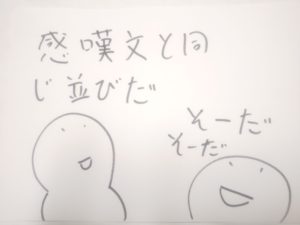 感嘆文と同
じ並びだ
そーだ
そーだ